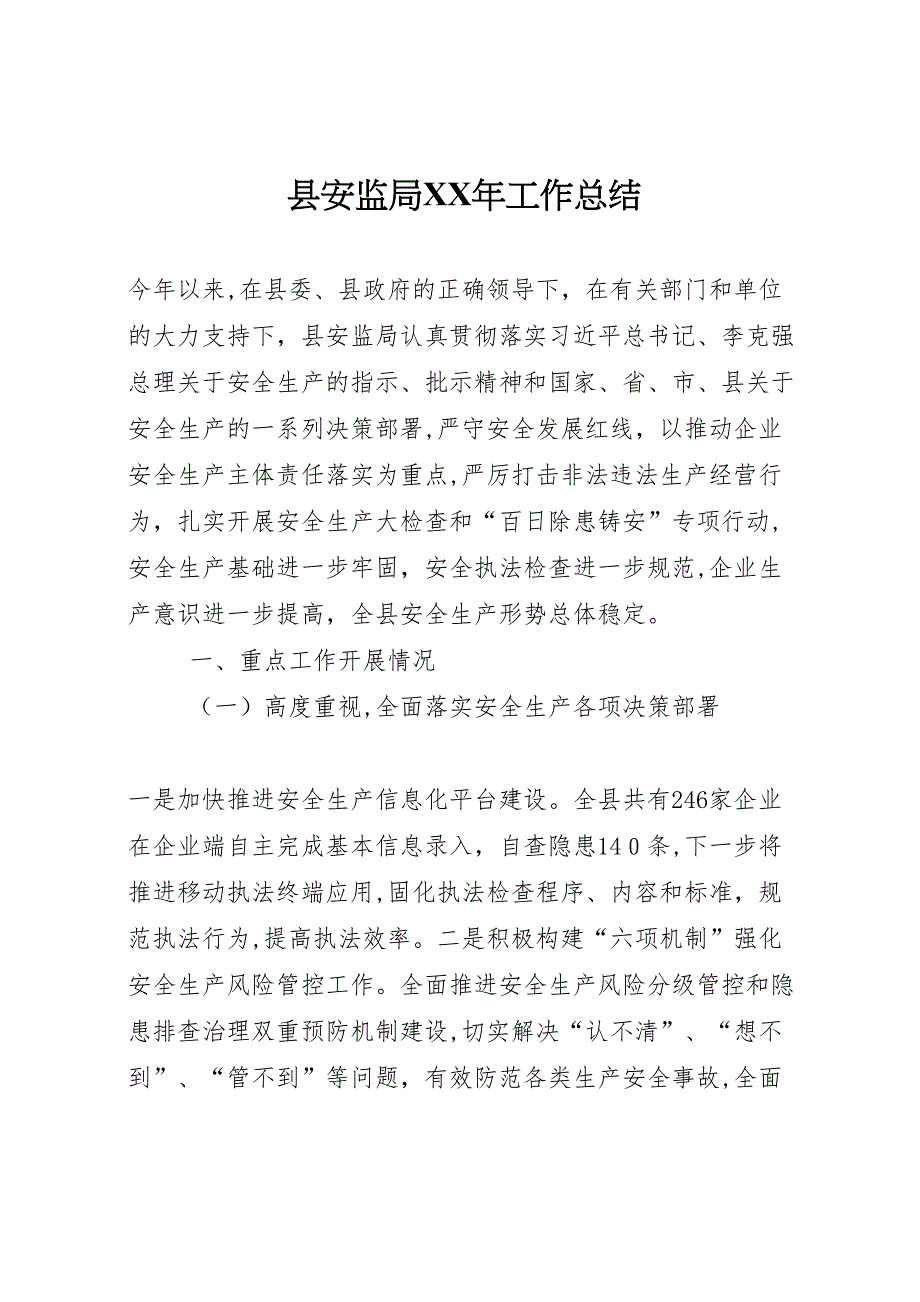 县安监局XX年工作总结
今年以来,在县委、县政府的正确领导下，在有关部门和单位
的大力支持下，县安监局认真贯彻落实习近平总书记、李克强
总理关于安全生产的指示、批示精神和国家、省、市、县关于
安全生产的一系列决策部署,严守安全发展红线，以推动企业
安全生产主体责任落实为重点,严厉打击非法违法生产经营行
为，扎实开展安全生产大检查和“百日除患铸安”专项行动,
安全生产基础进一步牢固，安全执法检查进一步规范,企业生
产意识进一步提高，全县安全生产形势总体稳定。
一、重点工作开展情况
（一）高度重视,全面落实安全生产各项决策部署
一是加快推进安全生产信息化平台建设。全县共有246家企业
在企业端自主完成基本信息录入，自查隐患14０条,下一步将
推进移动执法终端应用,固化执法检查程序、内容和标准，规
范执法行为,提高执法效率。二是积极构建“六项机制”强化
安全生产风险管控工作。全面推进安全生产风险分级管控和隐
患排查治理双重预防机制建设,切实解决“认不清”、“想不
到”、“管不到”等问题，有效防范各类生产安全事故,全面